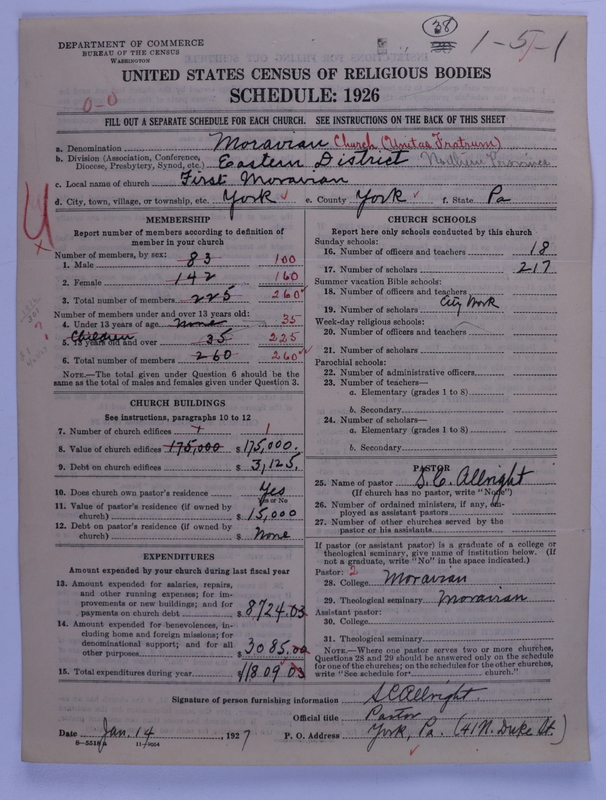 38
1-5-1
DEPARTMENT OF COMMERCE
BUREAU OF THE CENSUS
WASHINGTON
UNITED STATES CENSUS OF RELIGIOUS BODIES
SCHEDULE: 1926
0-0
FILL OUT A SEPARATE SCHEDULE FOR EACH CHURCH. SEE INSTRUCTIONS ON THE BACK OF THIS SHEET
a. Denomination Moravian Church (Unitas Fratrum)
b. Division (Association, Conference, Diocese, Presbytery, Synod, etc.) Eastern District Northern Province
c. Local name of church First Moravian
d. City, town, village, or township, etc. York e. County York f. State Pa
MEMBERSHIP
Report number of members according to definition of
member in your church
Number of members, by sex:
1. Male 83 100
2. Female 142 160
3. Total number of members 225 260
Number of members under and over 13 years old:
4. Under 13 years of age None 35
Children
5. 13 years old and over 35 225
6. Total number of members 260 260
NOTE.—The total given under Question 6 should be the
same as the total of males and females given under Question 3.
CHURCH BUILDINGS
See instructions, paragraphs 10 to 12
7. Number of church edifices 1
8. Value of church edifices 175,000 $ 175,000.
9. Debt on church edifices $ 3,125.
10. Does church own pastor's residence Yes
Yes or No
11. Value of pastor's residence (if owned by
church) $ 15,000
12. Debt on pastor's residence (if owned by
church) $ None
EXPENDITURES
Amount expended by your church during last fiscal year
13. Amount expended for salaries, repairs,
and other running expenses; for im-
provements or new buildings; and for
payments on church debt $ 8724.03
14. Amount expended for benevolences, in-
cluding home and foreign missions; for
denominational support; and for all
other purposes $ 3085.00
15. Total expenditures during year $ 11809.03
CHURCH SCHOOLS
Report here only schools conducted by this church
Sunday schools:
16. Number of officers and teachers 18
17. Number of scholars 217
Summer vacation Bible schools:
18. Number of officers and teachers
19. Number of scholars City Work
Week-day religious schools:
20. Number of officers and teachers
21. Number of scholars
Parochial schools:
22. Number of administrative officers
23. Number of teachers—
a. Elementary (grades 1 to 8)
b. Secondary
24. Number of scholars—
a. Elementary (grades 1 to 8)
b. Secondary
PASTOR
25. Name of pastor S. C. Allright
(If church has no pastor, write "None")
26. Number of ordained ministers, if any, em-
ployed as assistant pastors
27. Number of other churches served by the
pastor or his assistants
If pastor (or assistant pastor) is a graduate of a college or
theological seminary, give name of institution below. (If
not a graduate, write "No" in the space indicated.)
Pastor: 2
28. College Moravian
29. Theological seminary Moravian
Assistant pastor:
30. College
31. Theological seminary
NOTE.—Where one pastor serves two or more churches,
Questions 28 and 29 should be answered only on the schedule
for one of the churches; on the schedules for the other churches,
write "See schedule for church."
Signature of person furnishing information S C Allright.
Official title Pastor
Date Jan. 14, 1927 P. O. Address York, Pa. (41 N. Duke St.)
8—5518a 11—9054